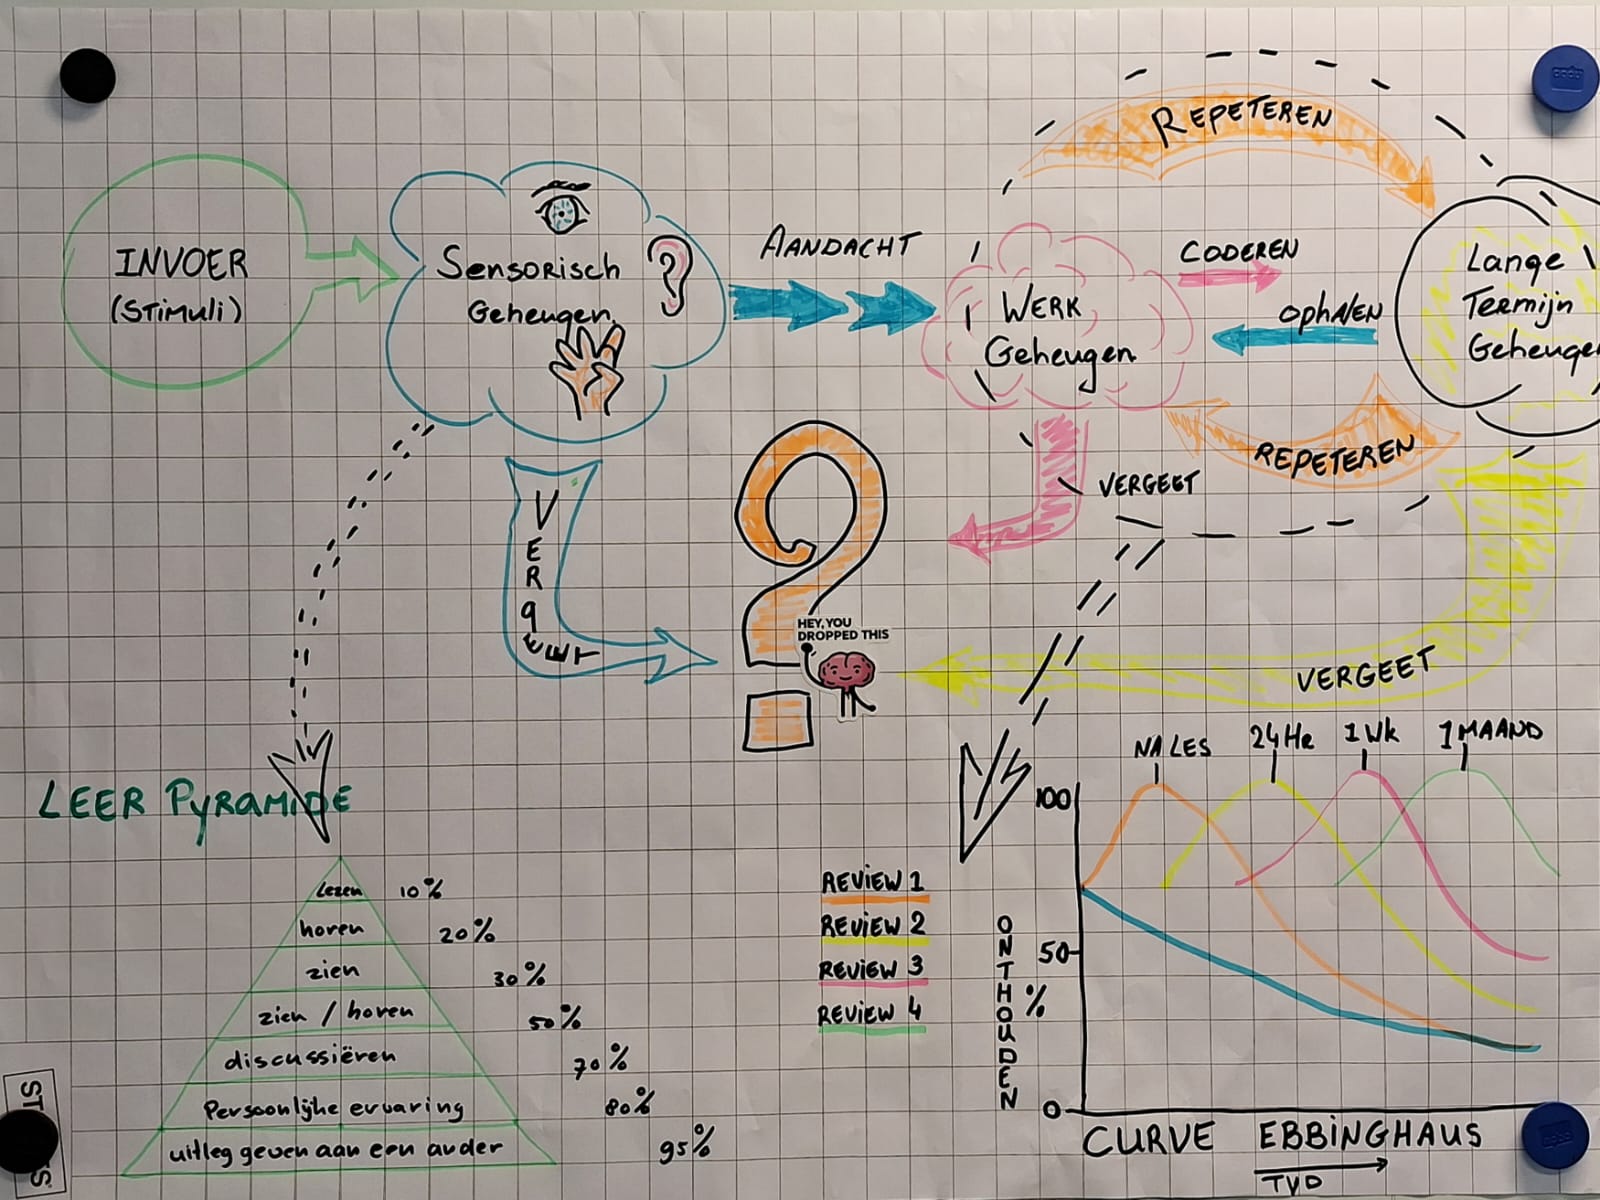 REPETEREN
INVOER
(Stimuli)
Sensorisch
Geheugen
AANDACHT
WERK
Geheugen
CODEREN
OphAlEN
Lange
Termijn
Geheugen
REPETEREN
VERGEET
VERgEET
HEY, YOU
DROPPED THIS
VERGEET
LEER PyRAMiDE
lezen 10%
horen 20%
zien 30%
zien / horen 50%
discussiëren 70%
Persoonlijke ervaring 80%
uitleg geven aan een ander 95%
REViEW 1
REViEW 2
REViEW 3
REViEW 4
NA LES
24HR
1Wk
1MAAND
100
50
0
ONTHOUDEN
%
CURVE EBBiNGHAUS
TYD